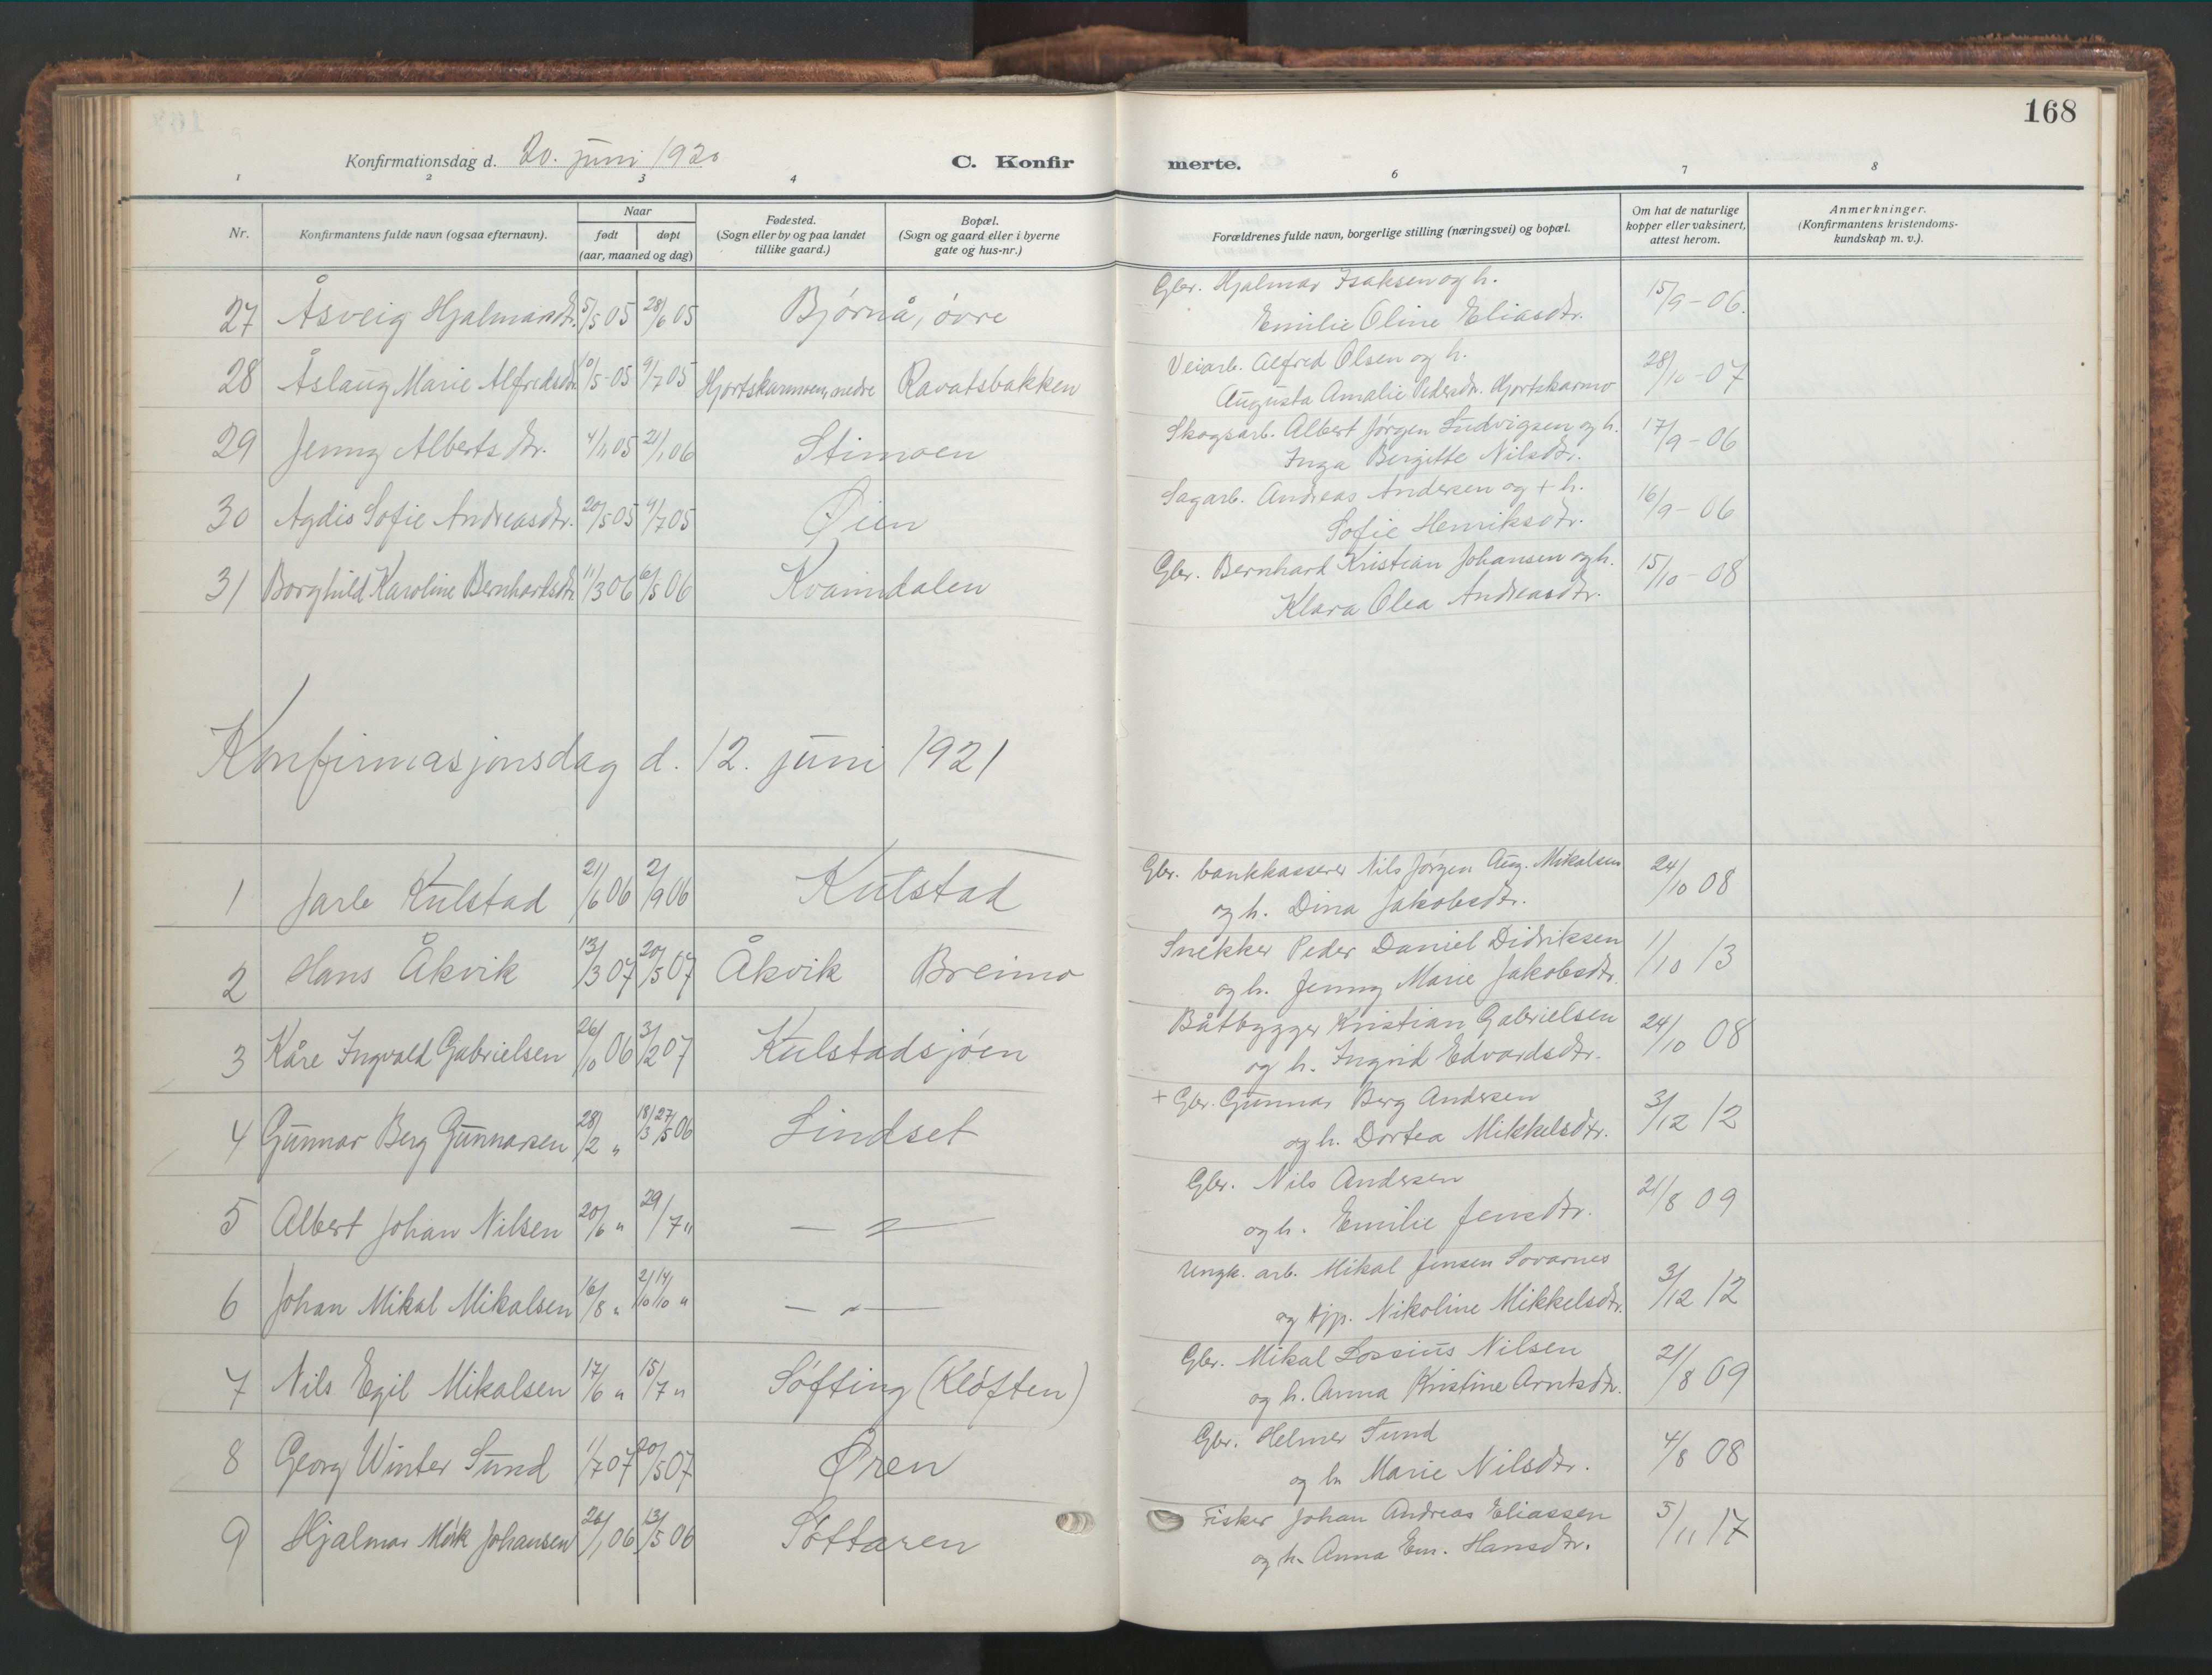 168
Konfirmationsdag d. 20. juni 1920
C. Konfir merte.
1 2 3 4 6 7 8
Nr.
Konfirmantens fulde navn (ogsaa efternavn).
Naar
født døpt
(aar, maaned og dag)
Fødested.
(Sogn eller by og paa landet
tillike gaard.)
Bopæl.
(Sogn og gaard eller i byerne
gate og hus-nr.)
Forældrenes fulde navn, borgerlige stilling (næringsvei) og bopæl.
Om hat de naturlige
kopper eller vaksinert,
attest herom.
Anmerkninger.
(Konfirmantens kristendoms-
kundskap m. v.).
27 Åsveig Hjalmarsdtr. 5/5 05 28/6 05 Bjørnå, øvre Gbr. Hjalmar Isaksen og h. 15/9 - 06.
Emilie Oline Eliasdtr.
28 Åslaug Marie Alfredsdtr. 10/5-05 9/7 05 Hjortskarmoen, nedre Ravatsbakken Veiarb. Alfred Olsen og h. 28/10 - 07
Augusta Amalie Pedersdtr. Hjortskarmo
29 Jenny Albertsdtr. 4/11 05 21/1 06 Stimoen Skogsarb. Albert Jørgen Ludvigsen og h. 17/9 - 06
Inga Bergitte Nilsdtr.
30 Agdis Sofie Andreasdtr. 20/5 05 9/7 05 Øien Sagarb. Andreas Andersen og + h. 16/9 - 06
Sofie Henriksdtr.
31 Borghild Karoline Bernhardsdtr. 11/3 06 6/5 06 Kvanndalen Gbr. Bernhard Kristian Johansen og h. 15/10 - 08
Klara Olea Andreasdtr.
Konfirmasjonsdag d. 12. juni 1921
1 Jarle Kulstad 21/6 06 2/9 06 Kulstad Gbr. bankkasserer Nils Jørgen Aug. Mikalsen 24/10 08
og h. Dina Jakobsdtr.
2 Hans Åkvik 13/3 07 20/5 07 Åkvik Breimo Snekker Peder Daniel Didriksen 1/10 13
og h. Jenny Marie Jakobsdtr.
3 Kåre Ingvald Gabrielsen 26/10 06 3/2 07 Kulstadsjøen Båtbygger Kristian Gabrielsen 24/10 08
og h. Ingrid Edvardsdtr.
4 Gunnar Berg Gunnarsen 28/2 " 18/3 27/5 06 Lindset + Gbr. Gunnar Berg Andersen 3/12 12
og h. Dortea Mikkelsdtr.
5 Albert Johan Nilsen 20/6 " 29/7 " — " — Gbr. Nils Andersen 21/8 09
og h. Emilie Jensdtr.
6 Johan Mikal Mikalsen 16/8 " 2/10 14/10 " — " — Ungk. arb. Mikal Jensen Sovarnes 3/12 12
og pp. Nikoline Mikkelsdtr.
7 Nils Egil Mikalsen 17/6 " 15/7 " Søfting (Kløften) Gbr. Mikal Lossius Nilsen 21/8 09
og h. Anna Kristine Arntsdtr.
8 Georg Winter Sund 1/7 07 20/5 07 Øren Gbr. Helmer Sund 4/8 08
og h. Marie Nilsdtr.
9 Hjalmar Mørk Johansen 26/1 06 13/5 06 Søftaren Fisker Johan Andreas Eliassen 5/11 17
og h. Anna Em. Hansdtr.